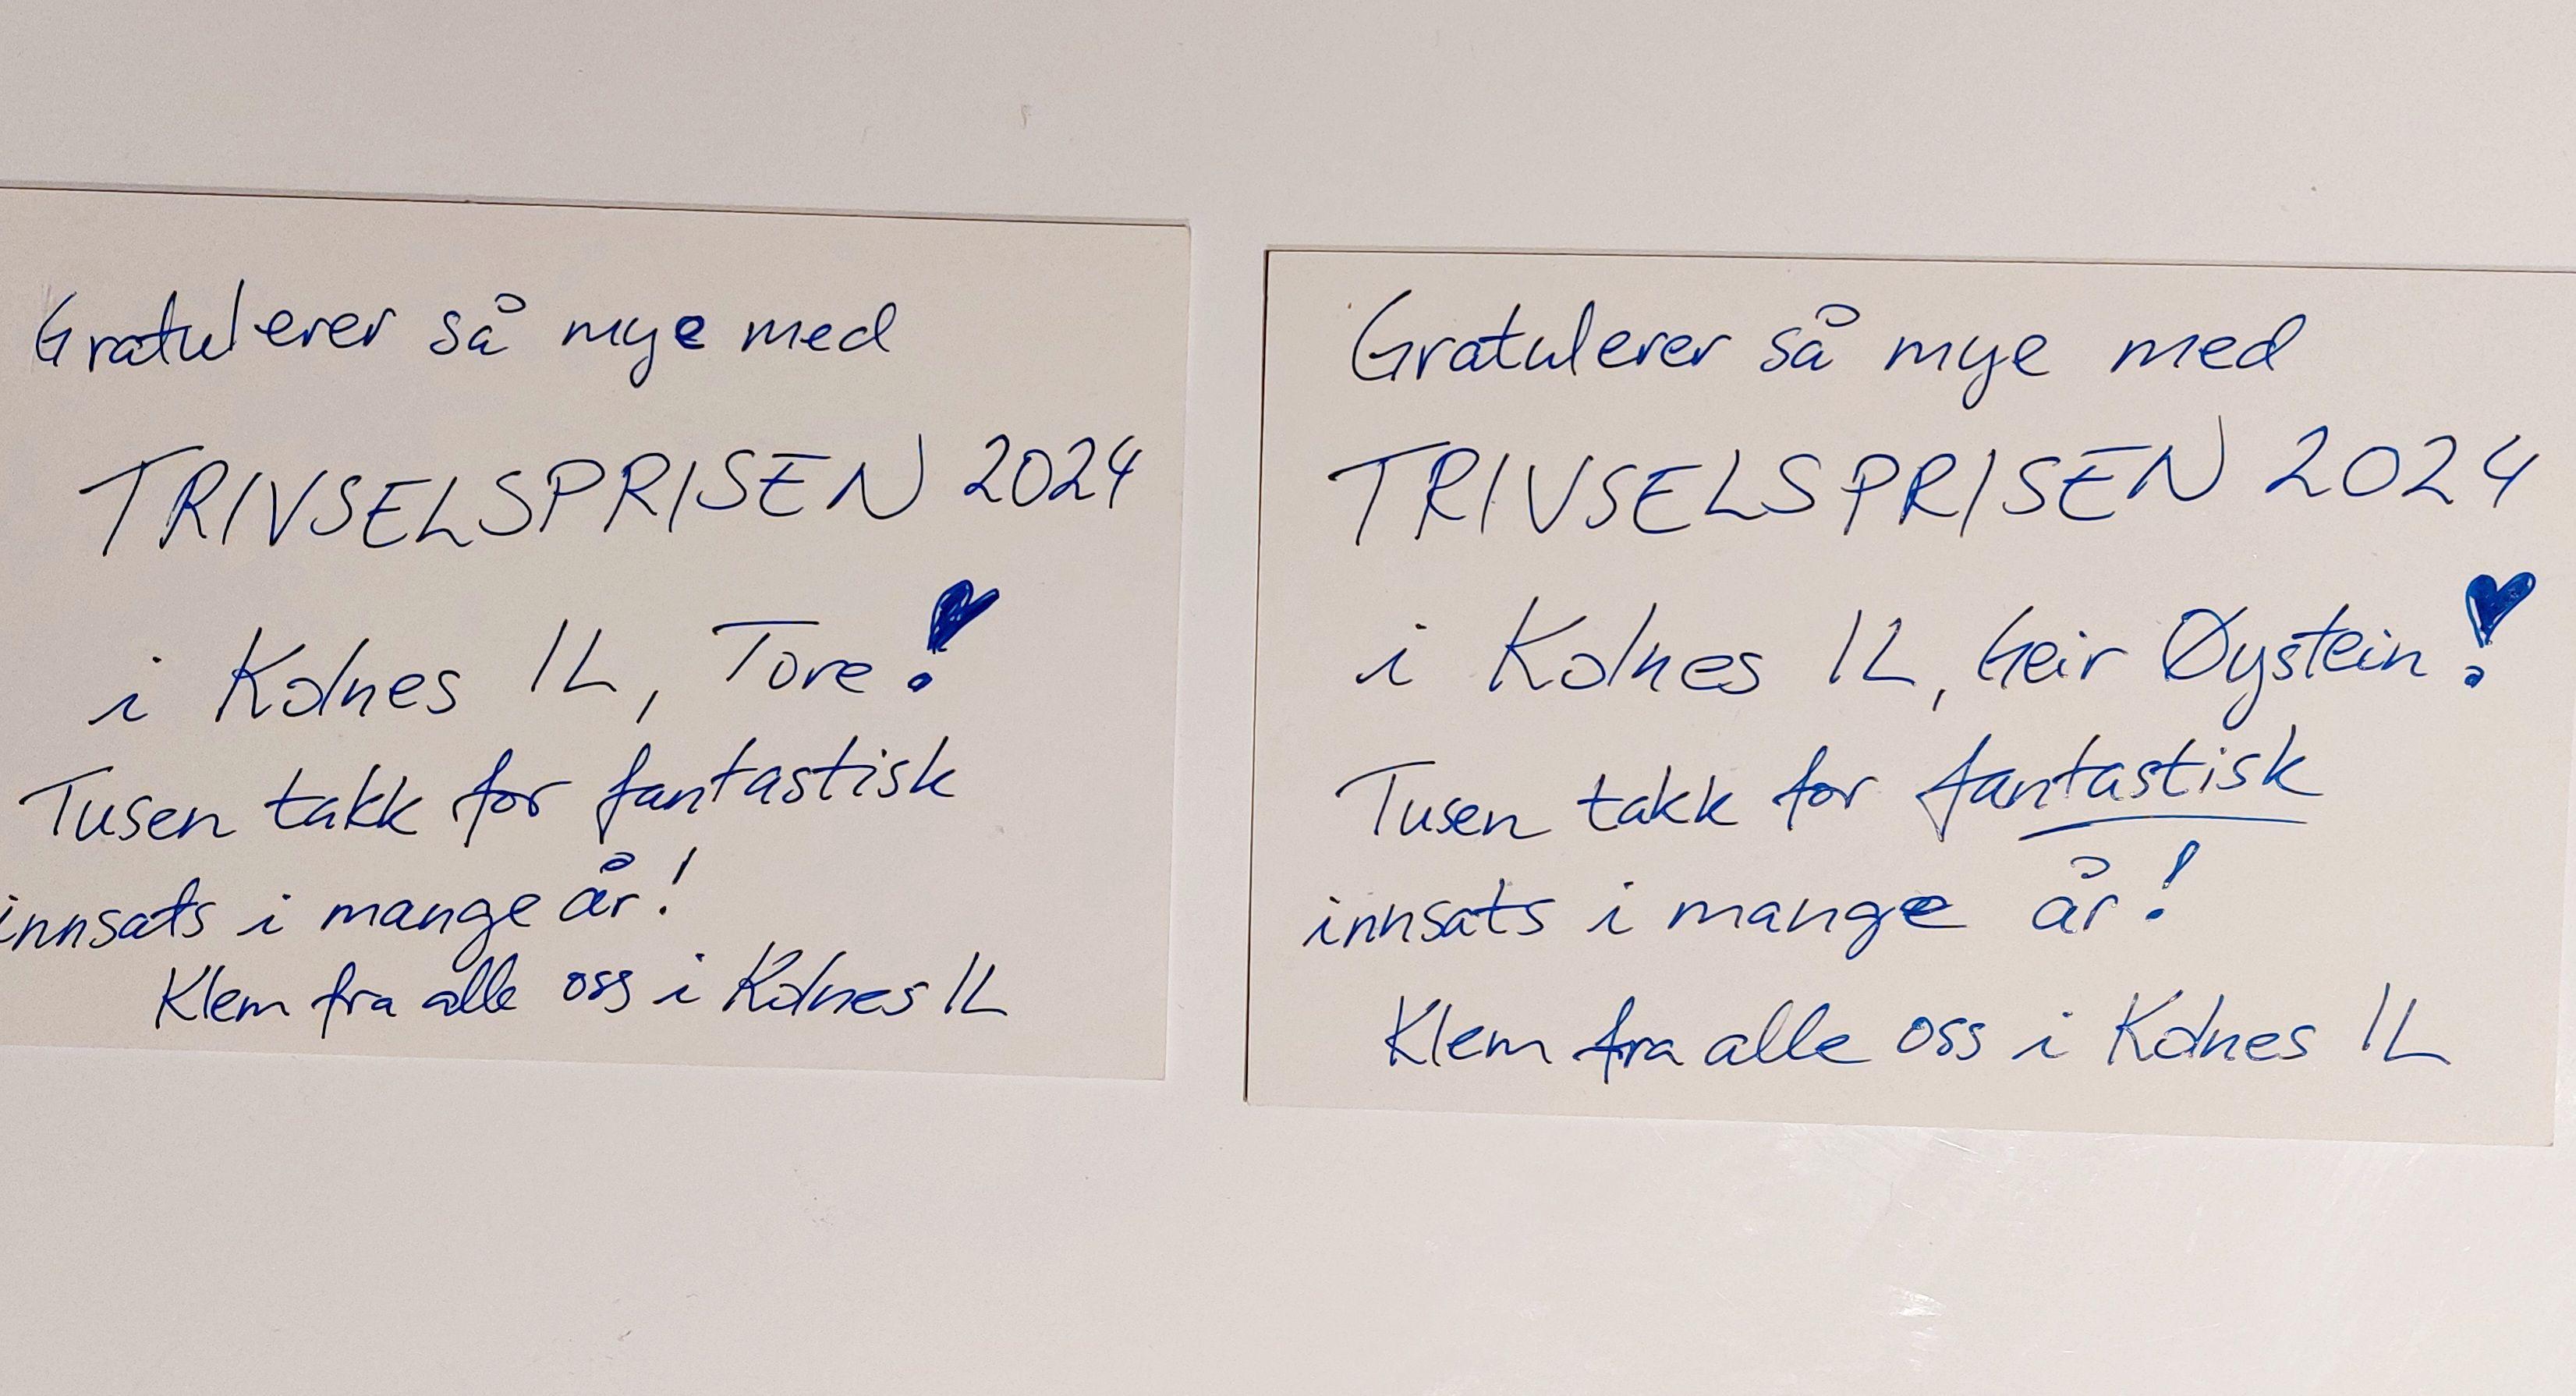 Gratulerer så mye med
TRIVSELSPRISEN 2024
i Kolnes IL, Tore!
Tusen takk for fantastisk
innsats i mange år!
Klem fra alle oss i Kolnes IL
Gratulerer så mye med
TRIVSELSPRISEN 2024
i Kolnes IL, Geir Øystein!
Tusen takk for fantastisk
innsats i mange år!
Klem fra alle oss i Kolnes IL